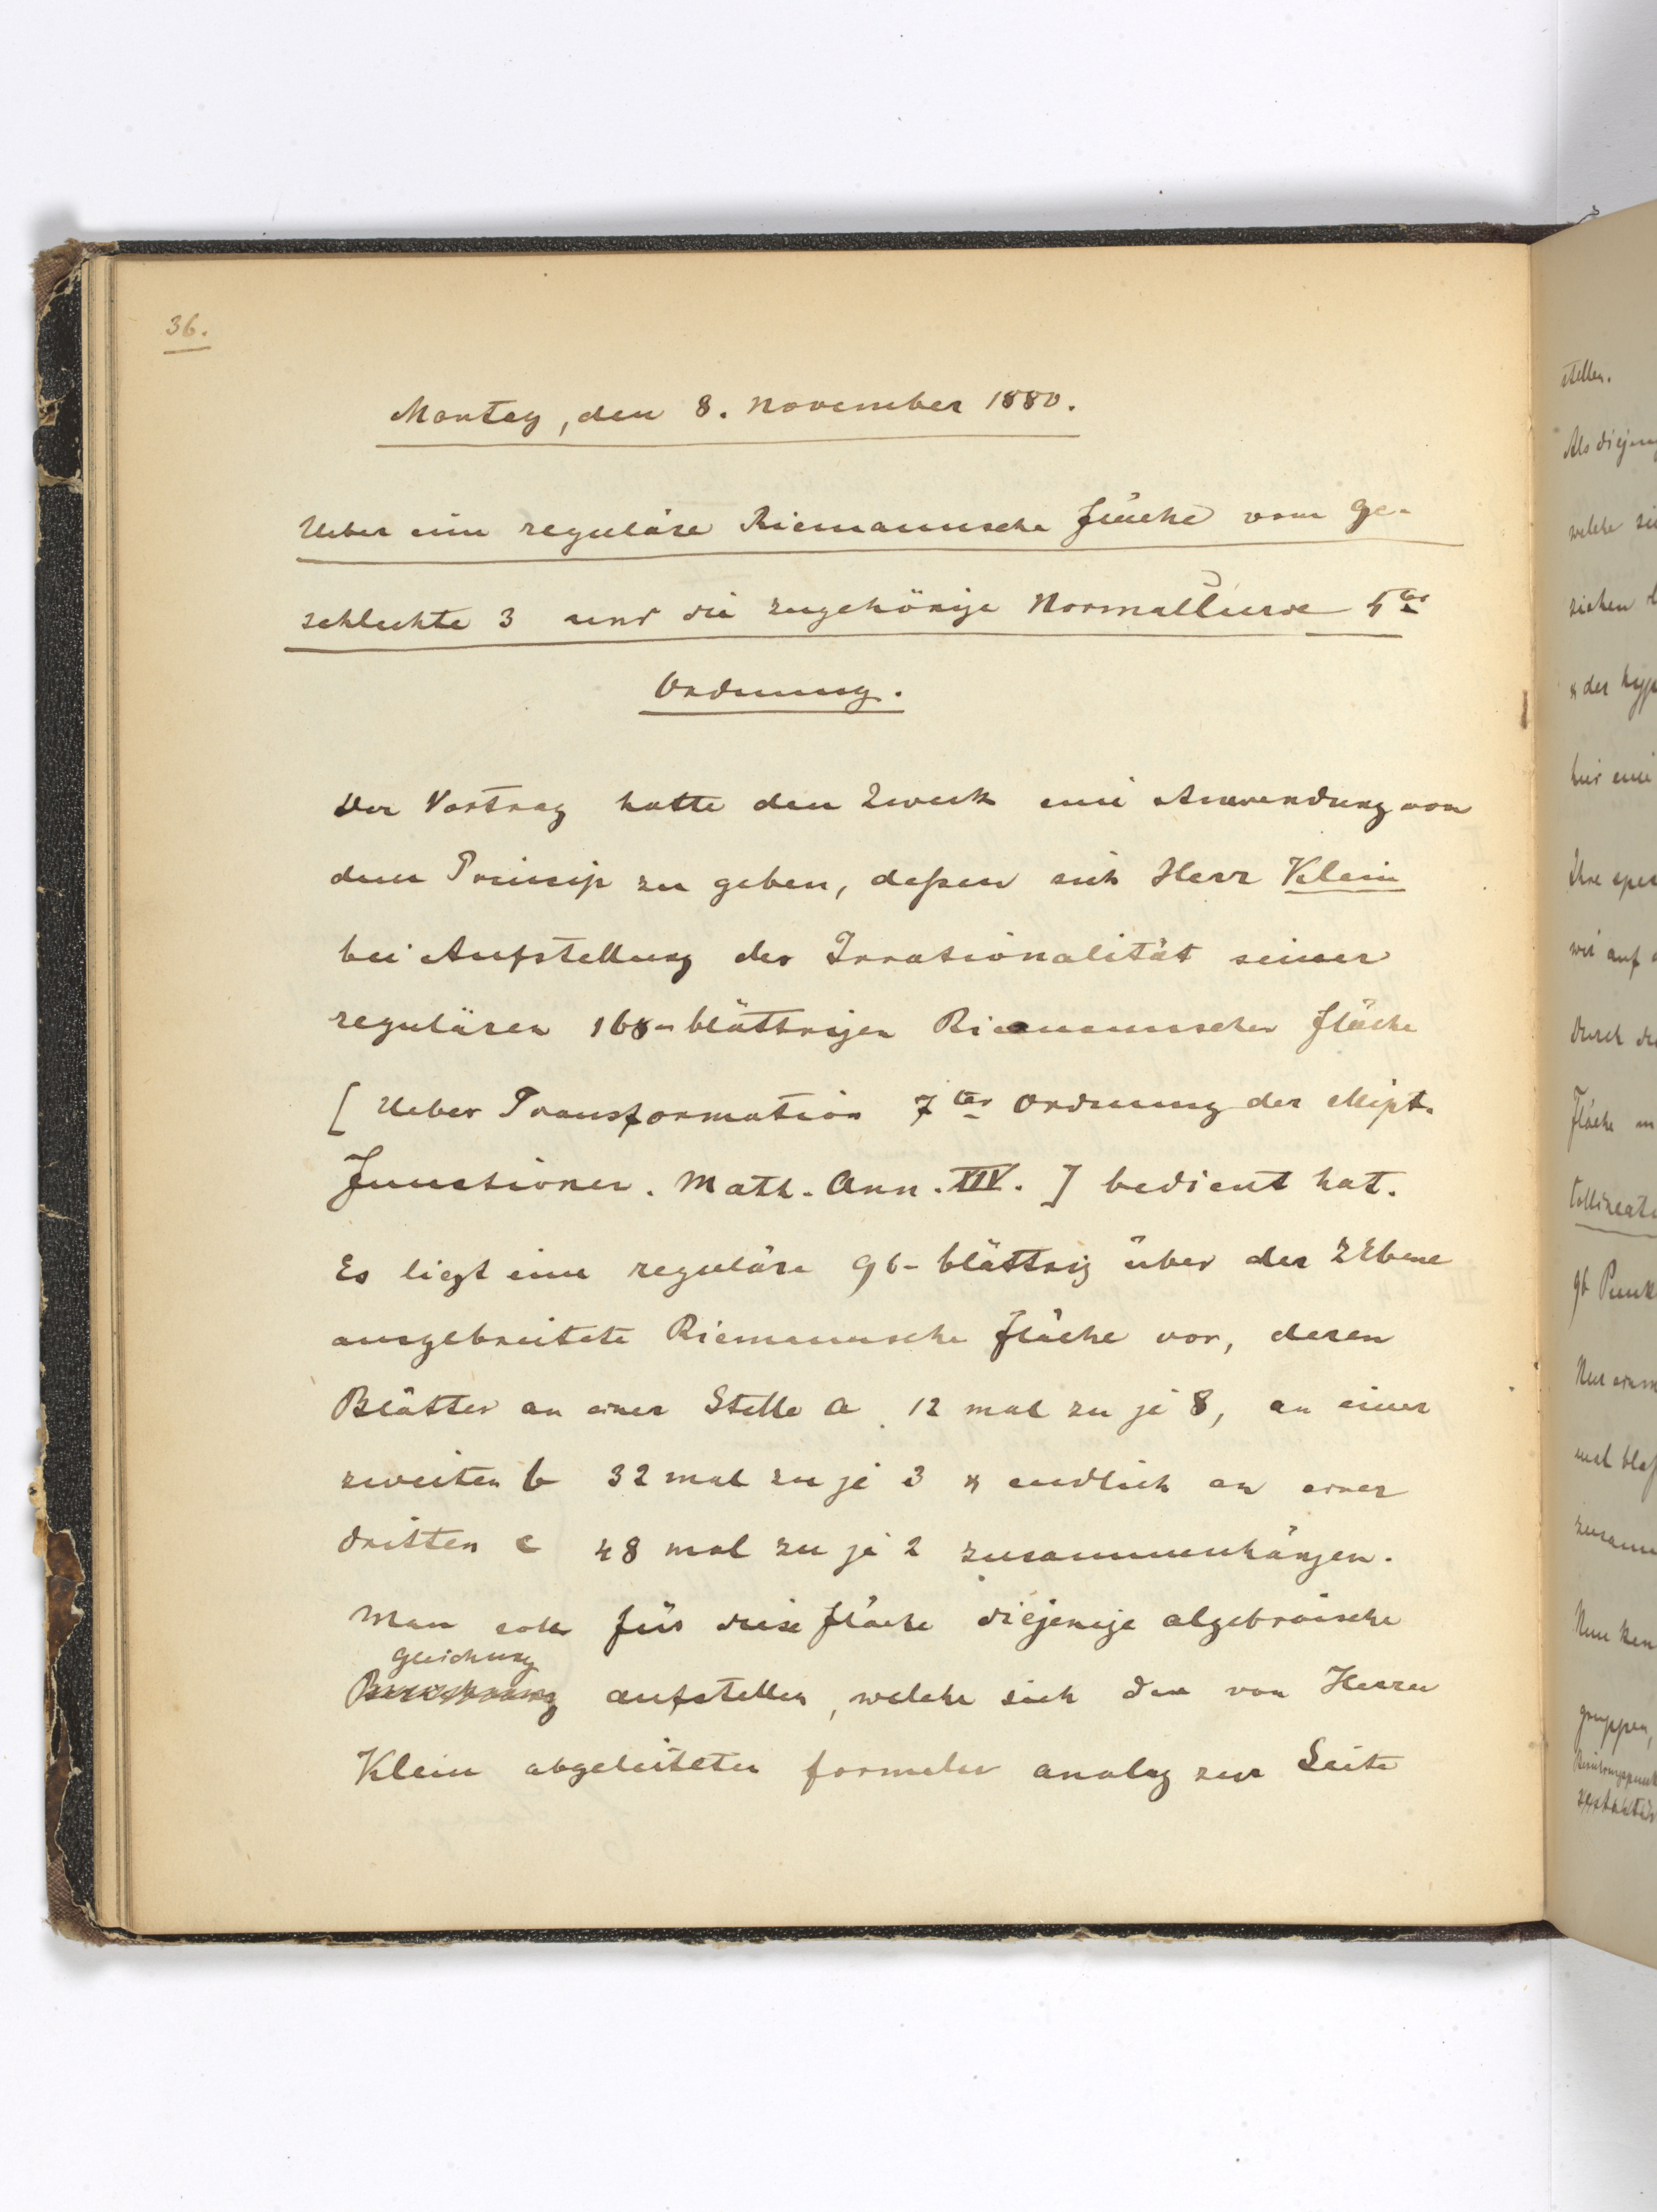 36.
Montag, den 8. November 1880.
Ueber eine reguläre Riemannsche Fläche vom Ge-
schlechte 3 und die zugehörige Normalcurve 4ter
Ordnung.
Der Vortrag hatte den Zweck eine Anwendung von
dem Princip zu geben, deßen sich Herr Klein
bei Aufstellung der Irrationalität seiner
regulären 168-blättrigen Riemannschen Fläche
[Ueber Transformation 7ter Ordnung der ellipt.
Functionen. Math. Ann. XIV.] bedient hat.
Es liegt eine reguläre 96-blättrig über der Z Ebene
ausgebreitete Riemannsche Fläche vor, deren
Blätter an einer Stelle a 12 mal zu je 8, an einer
zweiten b 32 mal zu je 3 & endlich an einer
dritten c 48 mal zu je 2 zusammenhängen.
Man soll für diese Fläche diejenige algebraische
Gleichung
aufstellen, welche sich den von Herrn
Klein abgeleiteten Formeln analog zur Seite
stellen.
Als diejen
welche
ziehen
& der
hier eine
Ihre
wir auf
durch
Fläche
Collineati
96 Punk
Nun
und
zusamm
Nun
gruppen,